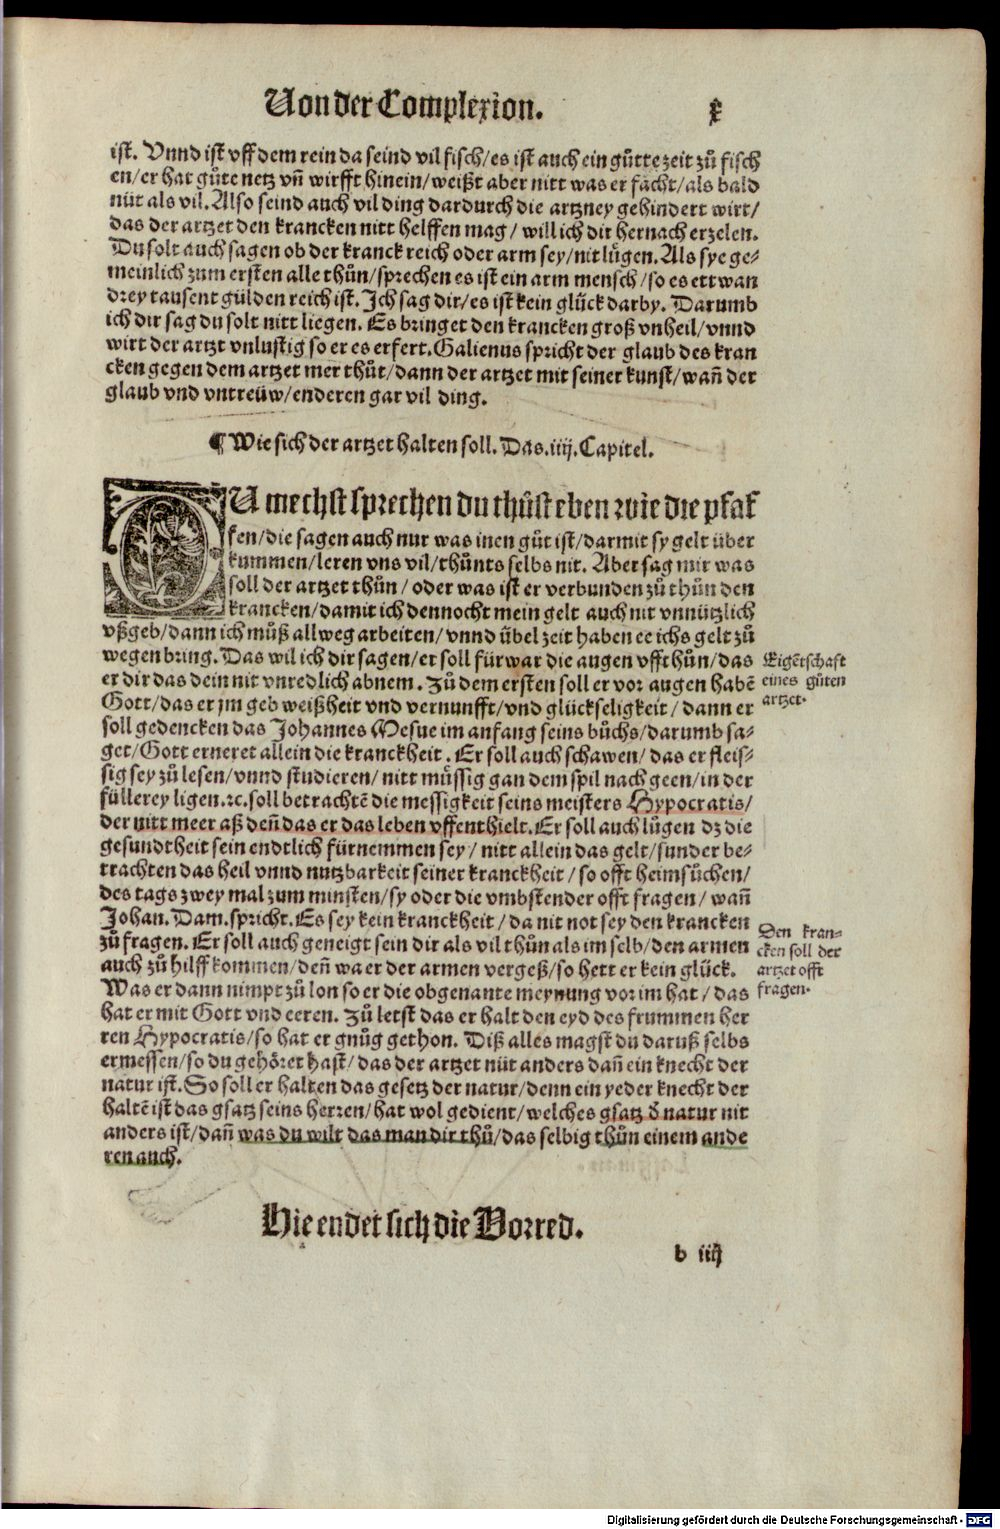 Von der Complexion. x
ist. Vnnd ist vff dem rein da seind vil fisch/es ist auch ein gůtte zeit zů fisch
en/er hat gůte netz vñ wirfft hinein/weißt aber nitt was er facht/als bald
nüt als vil. Also seind auch vil ding dardurch die artzney gehindert wirt/
das der artzet den krancken nitt helffen mag/ will ich dir hernach erzelen.
Du solt auch sagen ob der kranck reich oder arm sey/nit lůgen. Als sye ge⸗
meinlich zum ersten alle thůn/sprechen es ist ein arm mensch/so es ettwan
drey tausent gülden reich ist. Ich sag dir/es ist kein glück darby. Darumb
ich dir sag du solt nitt liegen. Es bringet den krancken groß vnheil/vnnd
wirt der artzt vnlustig so er es erfert. Galienus spricht der glaub des kran
cken gegen dem artzet mer thůt/dann der artzet mit seiner kunst/wañ der
glaub vnd vntreüw/enderen gar vil ding.
¶ Wie sich der artzet halten soll. Das .iiij. Capitel.
DU mechst sprechen du thůst eben wie die pfaf
fen/die sagen auch nur was inen gůt ist/darmit sy gelt über
kummen/leren vns vil/thůnts selbs nit. Aber sag mir was
soll der artzet thůn/ oder was ist er verbunden zů thůn den
krancken/damit ich dennocht mein gelt auch nit vnnützlich
vßgeb/dann ich můß allweg arbeiten/vnnd übel zeit haben ee ichs gelt zů
wegen bring. Das wil ich dir sagen/er soll fürwar die augen vff thůn/das
er dir das dein nit vnredlich abnem. Zů dem ersten soll er vor augen habẽ
Gott/das er jm geb weißheit vnd vernunfft/vnd glückseligkeit/ dann er
soll gedencken das Johannes Mesue im anfang seins bůchs/darumb sa⸗
get/Gott erneret allein die kranckheit. Er soll auch schawen/ das er fleis⸗
sig sey zů lesen/vnnd studieren/ nitt müssig gan dem spil nach geen/in der
füllerey ligen.ꝛc. soll betrachtẽ die messigkeit seins meisters Hypocratis/
der nitt meer aß deñ das er das leben vffenthielt. Er soll auch lůgen dz die
gesundtheit sein endtlich fürnemmen sey/ nitt allein das gelt/sunder be⸗
trachten das heil vnnd nutzbarkeit seiner kranckheit/ so offt heimsůchen/
des tags zwey mal zum minsten/sy oder die vmbstender offt fragen/ wañ
Johan. Dam. spricht. Es sey kein kranckheit/ da nit not sey den krancken
zů fragen. Er soll auch geneigt sein dir als vil thůn als im selb/den armen
auch zů hilff kommen/deñ wa er der armen vergeß/so hett er kein glück.
Was er dann nimpt zů lon so er die obgenante meynung vor im hat/ das
hat er mit Gott vnd eeren. Zů letst das er halt den eyd des frummen her
ren Hypocratis/so hat er gnůg gethon. Diß alles magst du daruß selbs
ermessen/so du gehöret hast/ das der artzet nüt anders dañ ein knecht der
natur ist. So soll er halten das gesetz der natur/denn ein yeder knecht der
haltẽ ist das gsatz seins herren/hat wol gedient/welches gsatz ď natur nit
anders ist/dañ was du wilt das man dir thů/das selbig thůn einem ande
ren auch.
Eigẽtschafft
eines gůten
artzet.
Den kran⸗
cken soll der
artzet offt
fragen.
Hie endet sich die Vorred.
b iiij
Digitalisierung gefördert durch die Deutsche Forschungsgemeinschaft - DFG